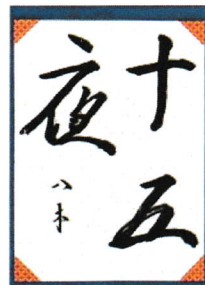 十五
夜
八木